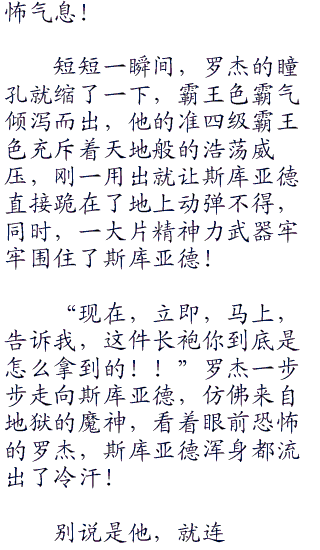 怖气息！
短短一瞬间，罗杰的瞳
孔就缩了一下，霸王色霸气
倾泻而出，他的准四级霸王
色充斥着天地般的浩荡威
压，刚一用出就让斯库亚德
直接跪在了地上动弹不得，
同时，一大片精神力武器牢
牢围住了斯库亚德！
“现在，立即，马上，
告诉我，这件长袍你到底是
怎么拿到的！！”罗杰一步
步走向斯库亚德，仿佛来自
地狱的魔神，看着眼前恐怖
的罗杰，斯库亚德浑身都流
出了冷汗！
别说是他，就连